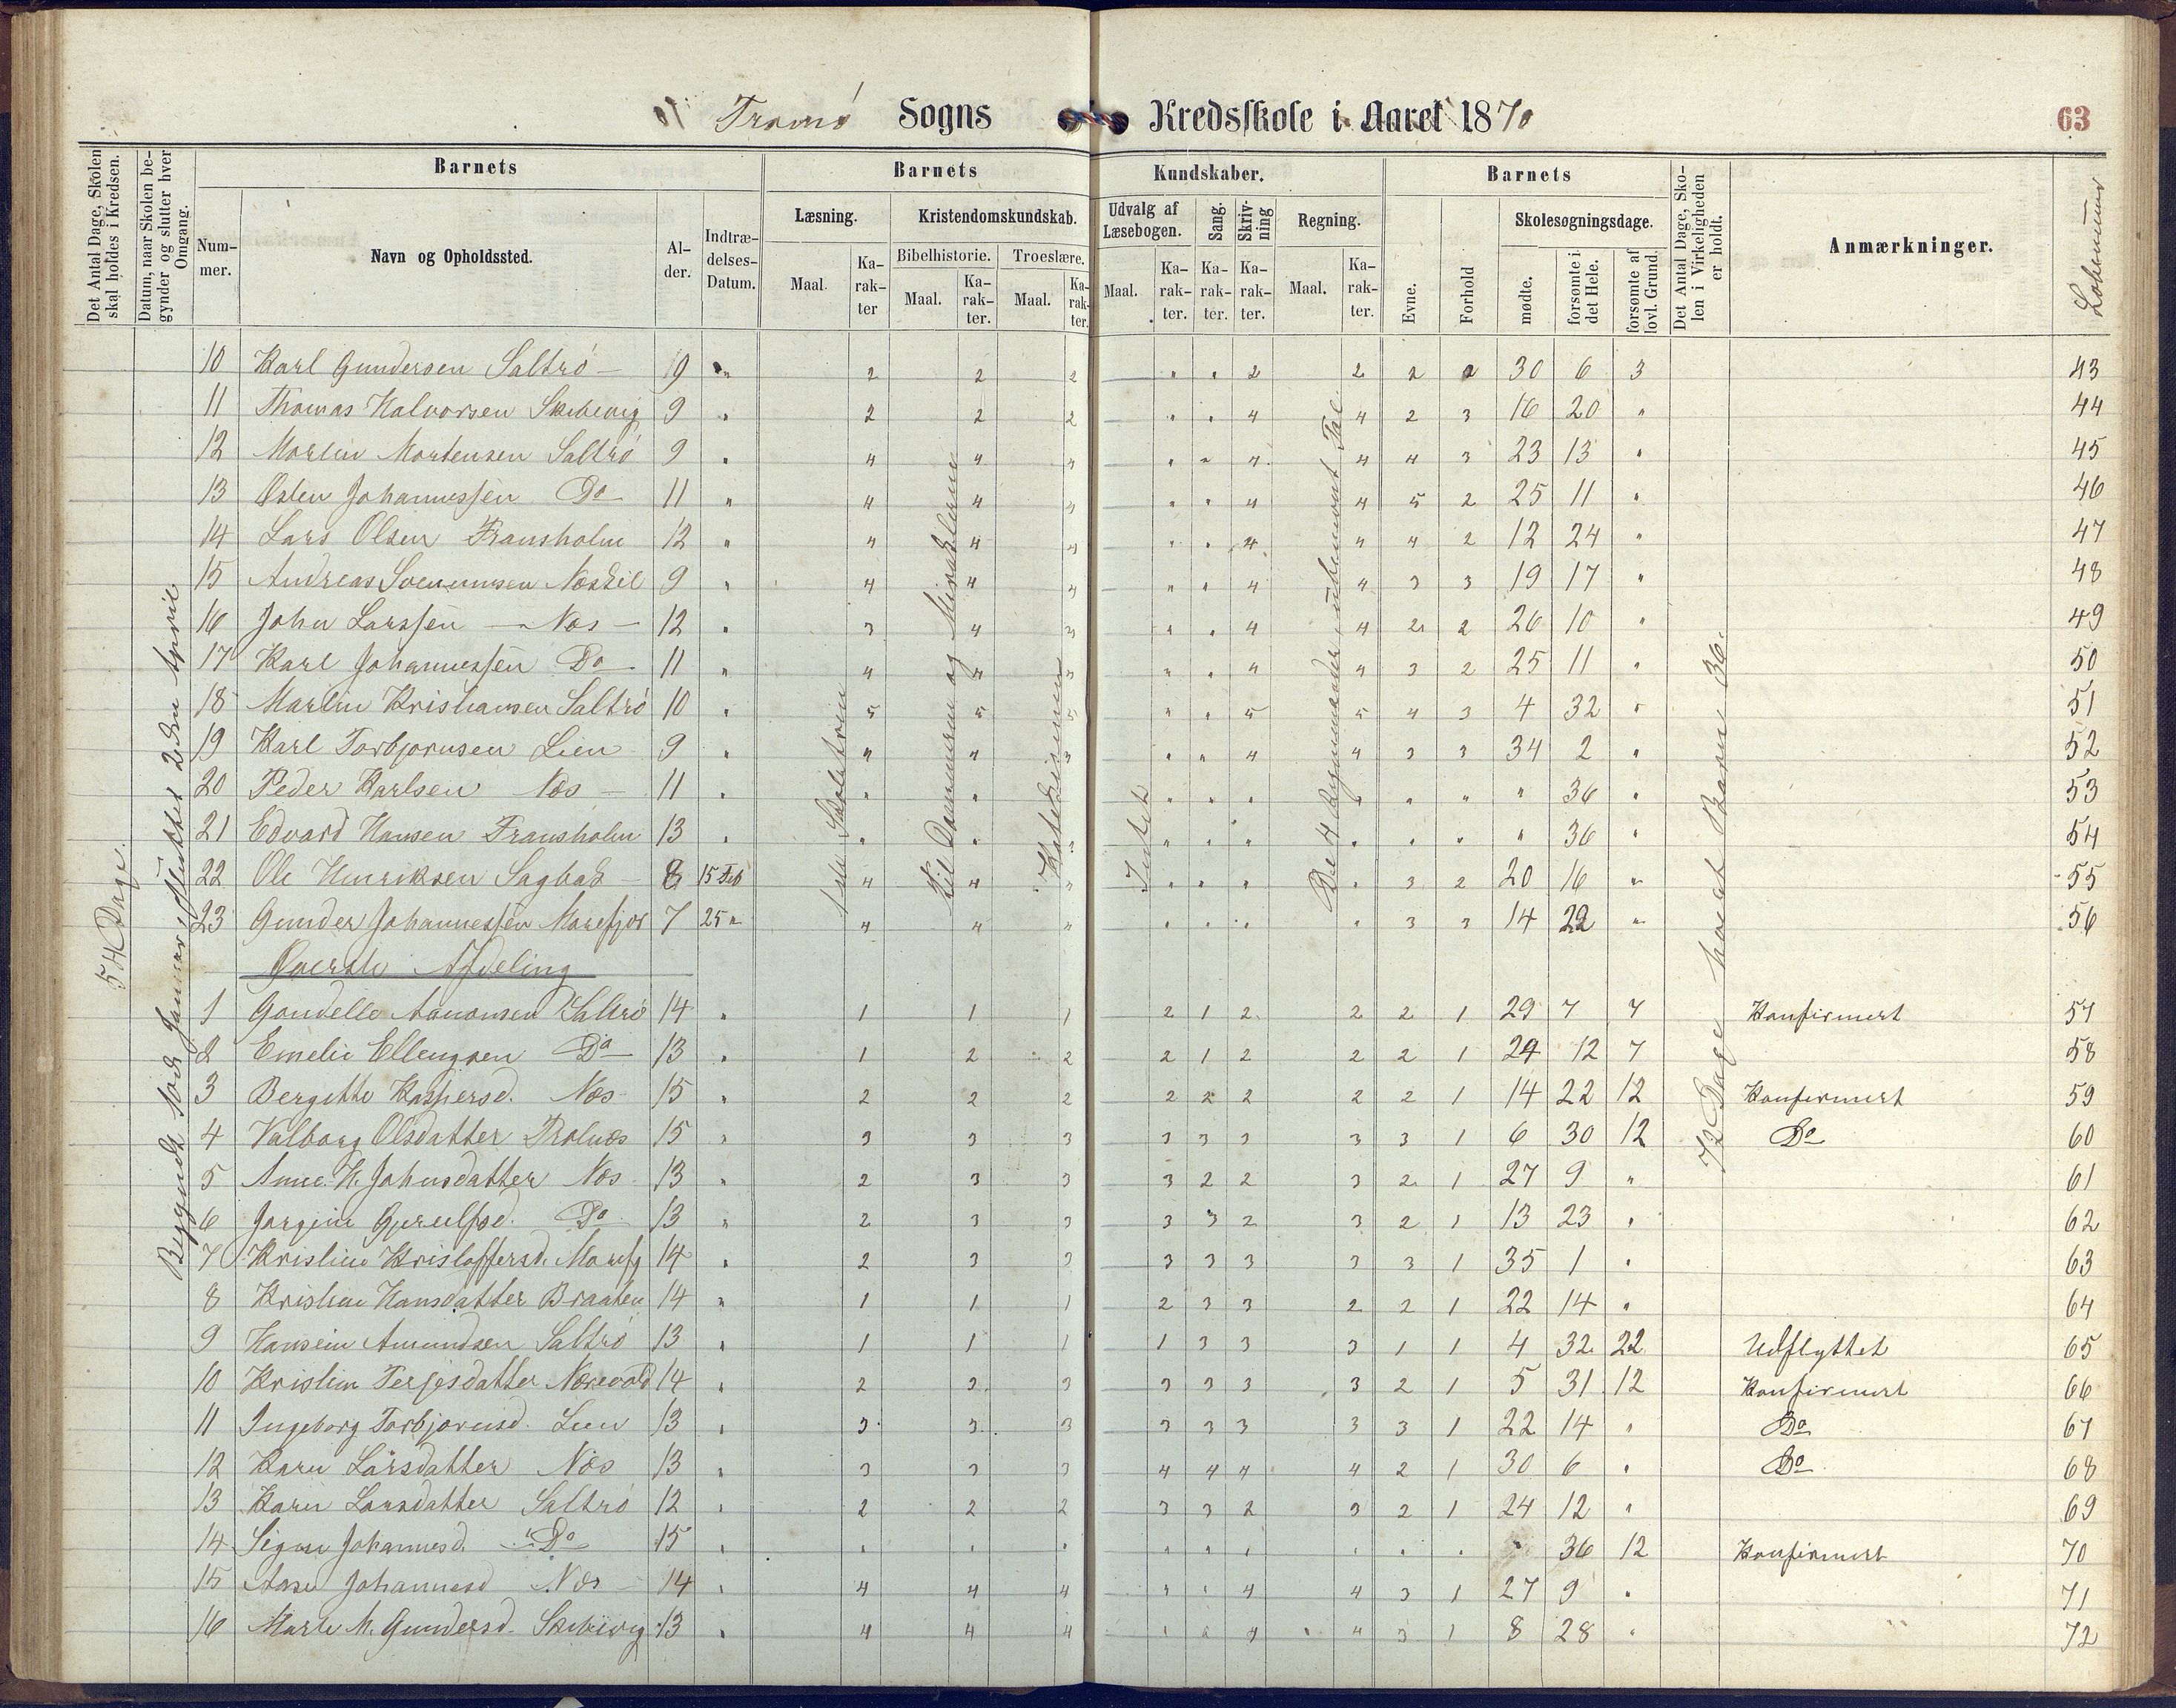 Tromø Sogns Kredsskole i Aaret 1870
63
Det Antal Dage, Skolen skal holdes i Kredsen.
Datum, naar Skolen begynder og slutter hver Omgang.
Barnets
Nummer.
Navn og Opholdssted.
Alder.
Indtrædelses-Datum.
Barnets Kundskaber.
Læsning.
Maal.
Karakter
Kristendomskundskab.
Bibelhistorie.
Maal.
Karakter.
Troeslære.
Maal.
Karakter.
Udvalg af Læsebogen.
Maal.
Karakter.
Sang.
Karakter.
Skrivning
Karakter.
Regning.
Maal.
Karakter.
Barnets
Evne.
Forhold
Skolesøgningsdage.
mødte.
forsømte i det Hele.
forsømte af lovl. Grund.
Det Antal Dage, Skolen i Virkeligheden er holdt.
Anmærkninger.
Løbenumer
54 Dage.
Begyndt 10de Januar sluttet 2den April
Katekismen
Intet
72 Dage hvert Barn 36.
10 Karl Gundersen Saltrø 9 " 2 2 2 " " 2 2 2 2 30 6 3 43
11 Thomas Halvorsen Skibevig 9 " 2 2 2 " " 4 4 2 3 16 20 " 44
12 Morten Mortensen Saltrø 9 " 4 4 4 " " 4 4 4 3 23 13 " 45
13 Østen Johannessen Do 11 " 4 4 4 " " 4 4 5 2 25 11 " 46
14 Lars Olsen Fransholm 12 " 4 4 4 " " 4 4 4 2 12 24 " 47
15 Andreas Svennumsen Næskil 9 " 4 4 4 " " 4 4 3 3 19 17 " 48
16 John Larssen Næs 12 " 3 4 3 " " 4 4 2 2 26 10 " 49
17 Karl Johannessen Do 11 " 4 4 " " " 4 4 3 2 25 11 " 50
18 Martin Kristiansen Saltrø 10 " 5 5 5 " " 5 5 4 3 4 32 " 51
19 Karl Torbjørnsen Lien 9 " 4 4 3 " " 4 4 3 3 34 2 " 52
20 Peder Karlsen Næs 11 " " " " " " " " " " " 36 " 53
21 Edvard Hansen Fransholm 13 " " " " " " " " " " " 36 " 54
22 Ole Henriksen Sagbak 8 15 Feb 4 4 " " " " " 3 2 20 16 " 55
23 Gunder Johannessen Marefjør 7 25 " 4 4 " " " " " 3 3 14 22 " 56
Øverste Afdeling
1 Gondelle Aanonsen Saltrø 14 " 1 1 1 2 1 2 2 2 1 29 7 7 Konfirmert 57
2 Emelie Ellengsen Do 13 " 1 2 2 2 1 2 2 2 1 24 12 7 58
3 Bergitte Kaspersd. Næs 15 " 2 2 2 2 2 2 2 2 1 14 22 12 Konfirmert 59
4 Valborg Olsdatter Trolnæs 15 " 3 3 3 3 3 3 3 3 1 6 30 12 Do 60
5 Anne. H. Johnsdatter Næs 13 " 2 3 3 3 2 2 3 2 1 27 9 " 61
6 Jørgine Gjerulfsd. Do 13 " 2 3 3 3 3 2 3 2 1 13 23 " 62
7 Kristine Kristoffersd. Marefj 14 " 2 3 3 3 3 3 3 3 1 35 1 " 63
8 Kristine Hansdatter Braaten 14 " 1 1 1 2 3 3 2 2 1 22 14 " 64
9 Hansine Amundsen Saltrø 13 " 1 1 1 1 3 3 3 1 1 4 32 22 Udflyttet 65
10 Kristine Terjesdatter 14 " 2 3 3 3 3 3 3 2 1 5 31 12 Konfirmert 66
11 Ingeborg Torbjørnsd. Lien 13 " 3 3 3 3 3 3 3 3 1 22 14 " Do 67
12 Karen Larsdatter Næs 13 " 3 3 3 4 4 4 4 2 1 30 6 " Do 68
13 Karen Larsdatter Saltrø 12 " 2 2 2 3 3 2 3 2 1 24 12 " 69
14 Signe Johannesd. Do 15 " " " " " " " " " " " 36 12 Konfirmert 70
15 Aase Johannesd Næs 14 " 4 4 4 " " 4 4 3 1 27 9 " 71
16 Marte M. Gundersd. Skibevig 13 " 4 4 4 " " 4 4 3 1 8 28 " 72